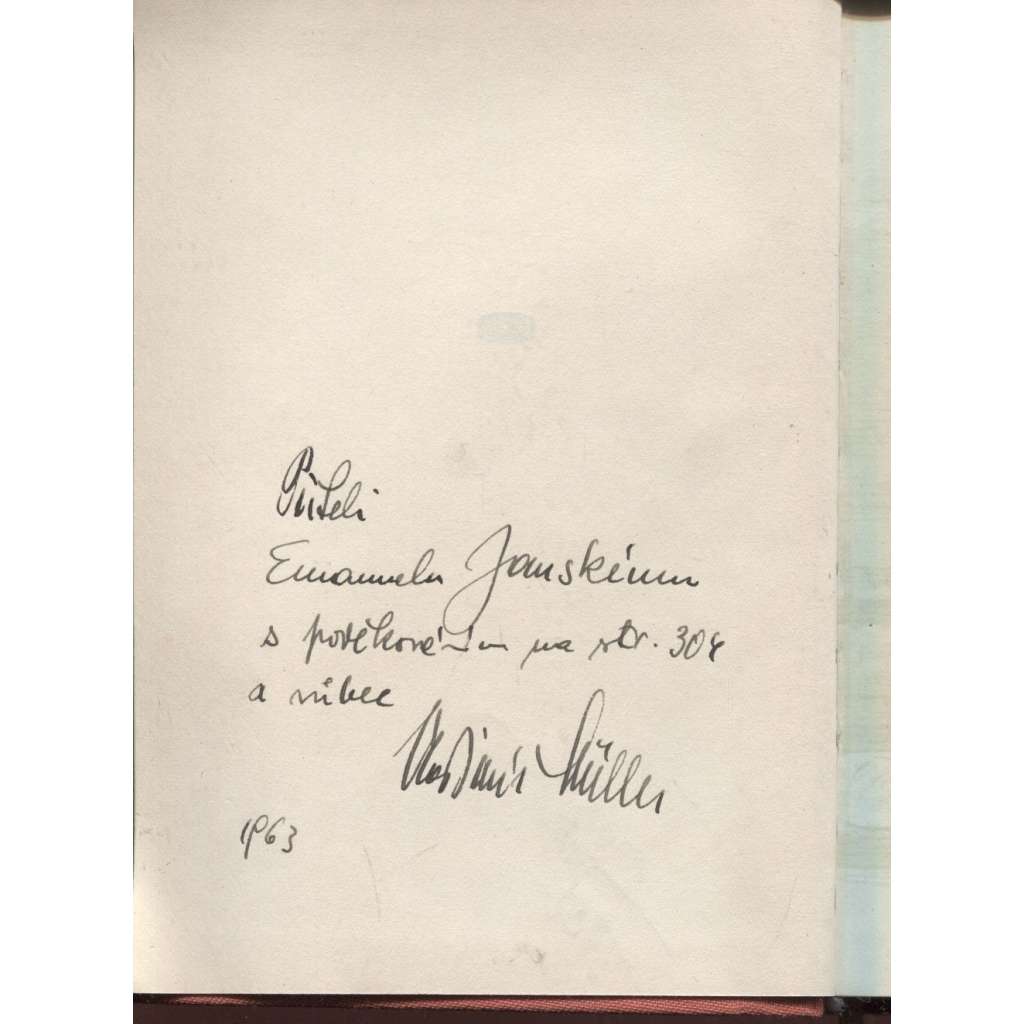 Příteli
Emanuelu Janskému
s poděkováním na str. 304
a vůbec
Vladimír Müller
1963